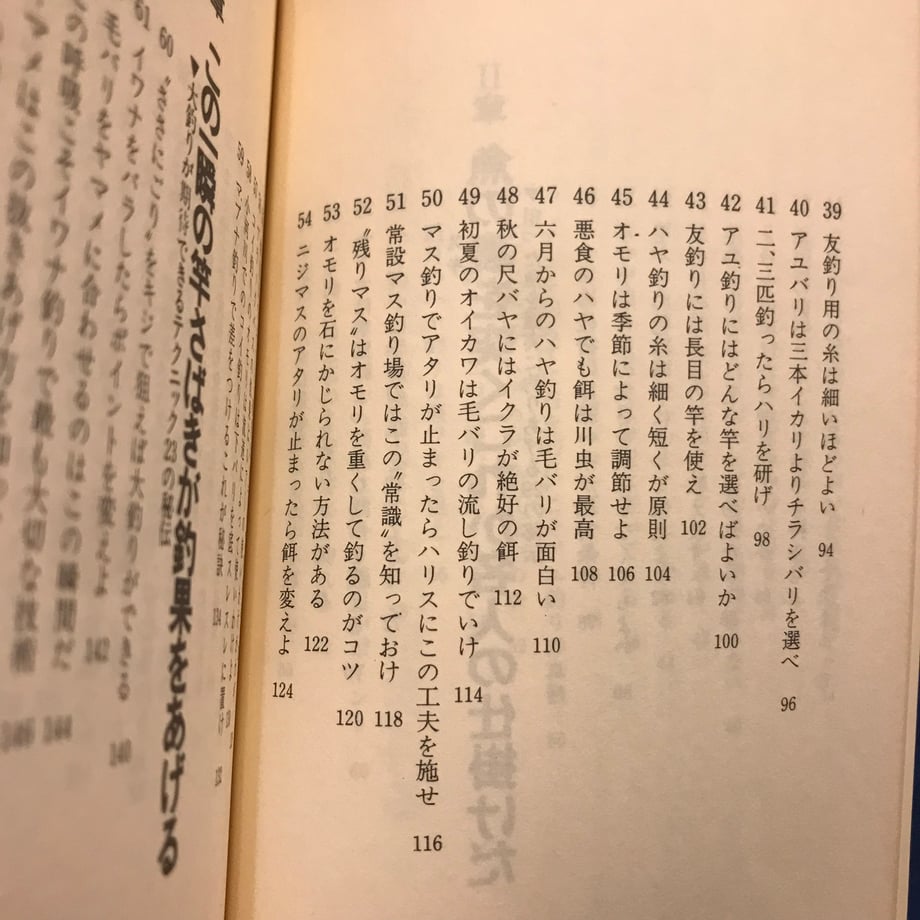 39 友釣り用の糸は細いほどよい 94
40 アユバリは三本イカリよりチラシバリを選べ 96
41 二、三匹釣ったらハリを研げ 98
42 アユ釣りにはどんな竿を選べばよいか 100
43 友釣りには長目の竿を使え 102
44 ハヤ釣りの糸は細く短くが原則 104
45 オモリは季節によって調節せよ 106
46 悪食のハヤでも餌は川虫が最高 108
47 六月からのハヤ釣りは毛バリが面白い 110
48 秋の尺バヤにはイクラが絶好の餌 112
49 初夏のオイカワは毛バリの流し釣りでいけ 114
50 マス釣りでアタリが止まったらハリスにこの工夫を施せ 116
51 常設マス釣り場ではこの〝常識〟を知っておけ 118
52 〝残りマス〟はオモリを重くして釣るのがコツ 120
53 オモリを石にかじられない方法がある 122
54 ニジマスのアタリが止まったら餌を変えよ 124
この一瞬の竿さばきが釣果をあげる
大釣りが期待できるテクニック23の秘伝
60 〝ささにごり〟をキジで狙えば大釣りができる 140
61 イワナをバラしたらポイントを変えよ 142
毛バリをヤマメに合わせるのはこの瞬間だ 144
の呼吸こそイワナ釣りで最も大切な技術 146